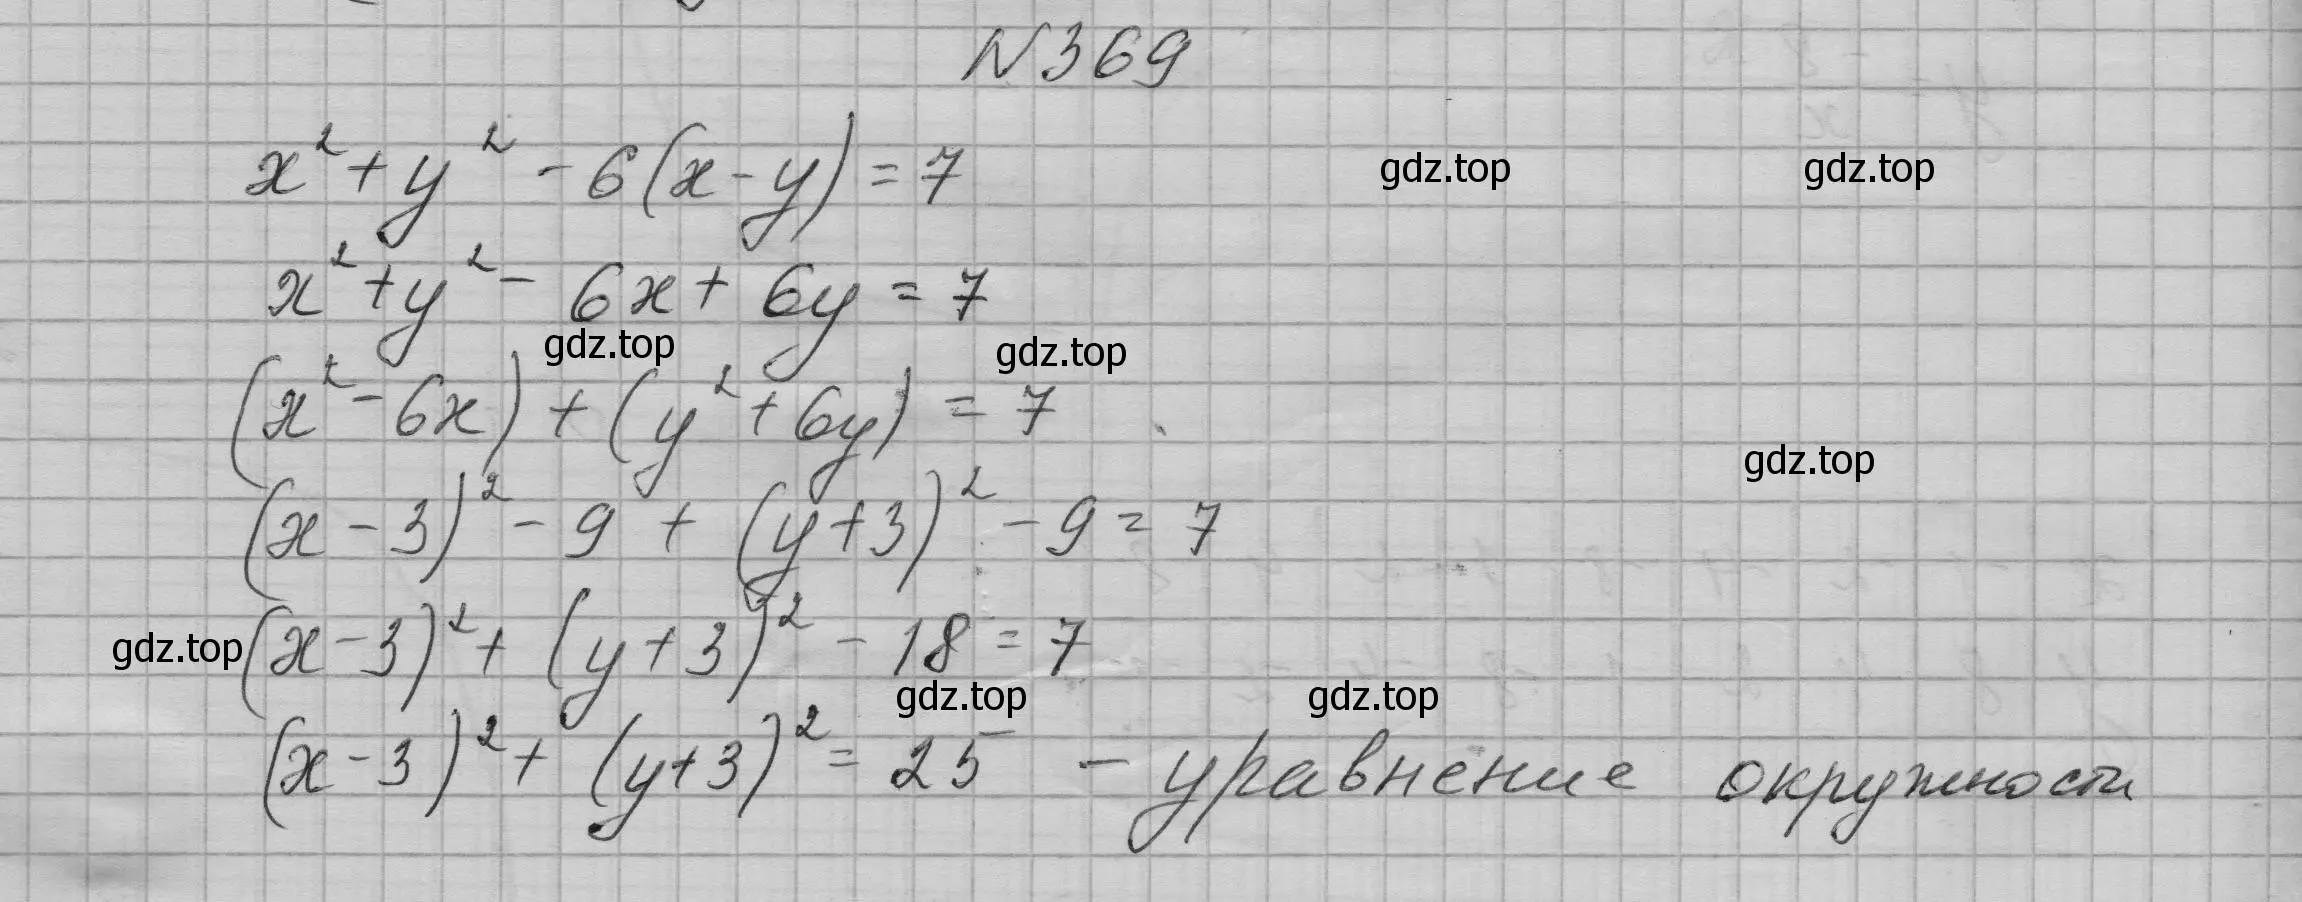 N369
x² + y² - 6(x - y) = 7
gdz.top gdz.top
x² + y² - 6x + 6y = 7
gdz.top gdz.top
(x² - 6x) + (y² + 6y) = 7
gdz.top
(x - 3)² - 9 + (y + 3)² - 9 = 7
gdz.top (x - 3)² + (y + 3)² - 18 = 7
gdz.top gdz.top
(x - 3)² + (y + 3)² = 25 - уравнение окружности